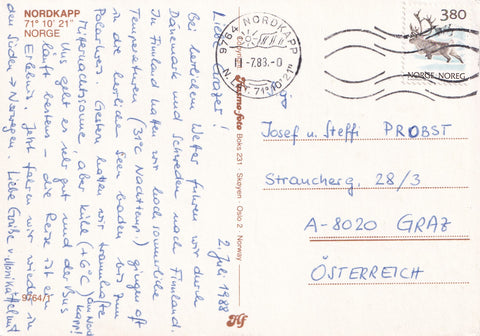 NORDKAPP
71° 10' 21"
NORGE
2. Juli 1988
Liebe Grazer!
Bei herrlichem Wetter fuhren wir durch
Dänemark und Schweden nach Finnland.
In Finnland hatten wir hochsommerliche
Temperaturen (31°C Nachttemp.) gingen oft
in die herrlichen Seen baden bis zum
Polarkreis. Gestern hatten wir traumhafte
Mitternachtssonne, aber kühle (+6°C) am Nordkapp!
Uns geht es sehr gut und der Bus
läuft bestens - die Reise ist ein
Erlebnis. Jetzt fahren wir wieder in
den Süden → Norwegen. Liebe Grüße v. Monika + Helmut
9764/1
Aune Fotos Boks 231 Skøyen Oslo 2 Norway
9764 NORDKAPP
-7.88-0
N.BR. 71°10'21"
380
NORGE NOREG
Josef u. Steffi PROBST
Straucherg. 28/3
A-8020 GRAZ
ÖSTERREICH